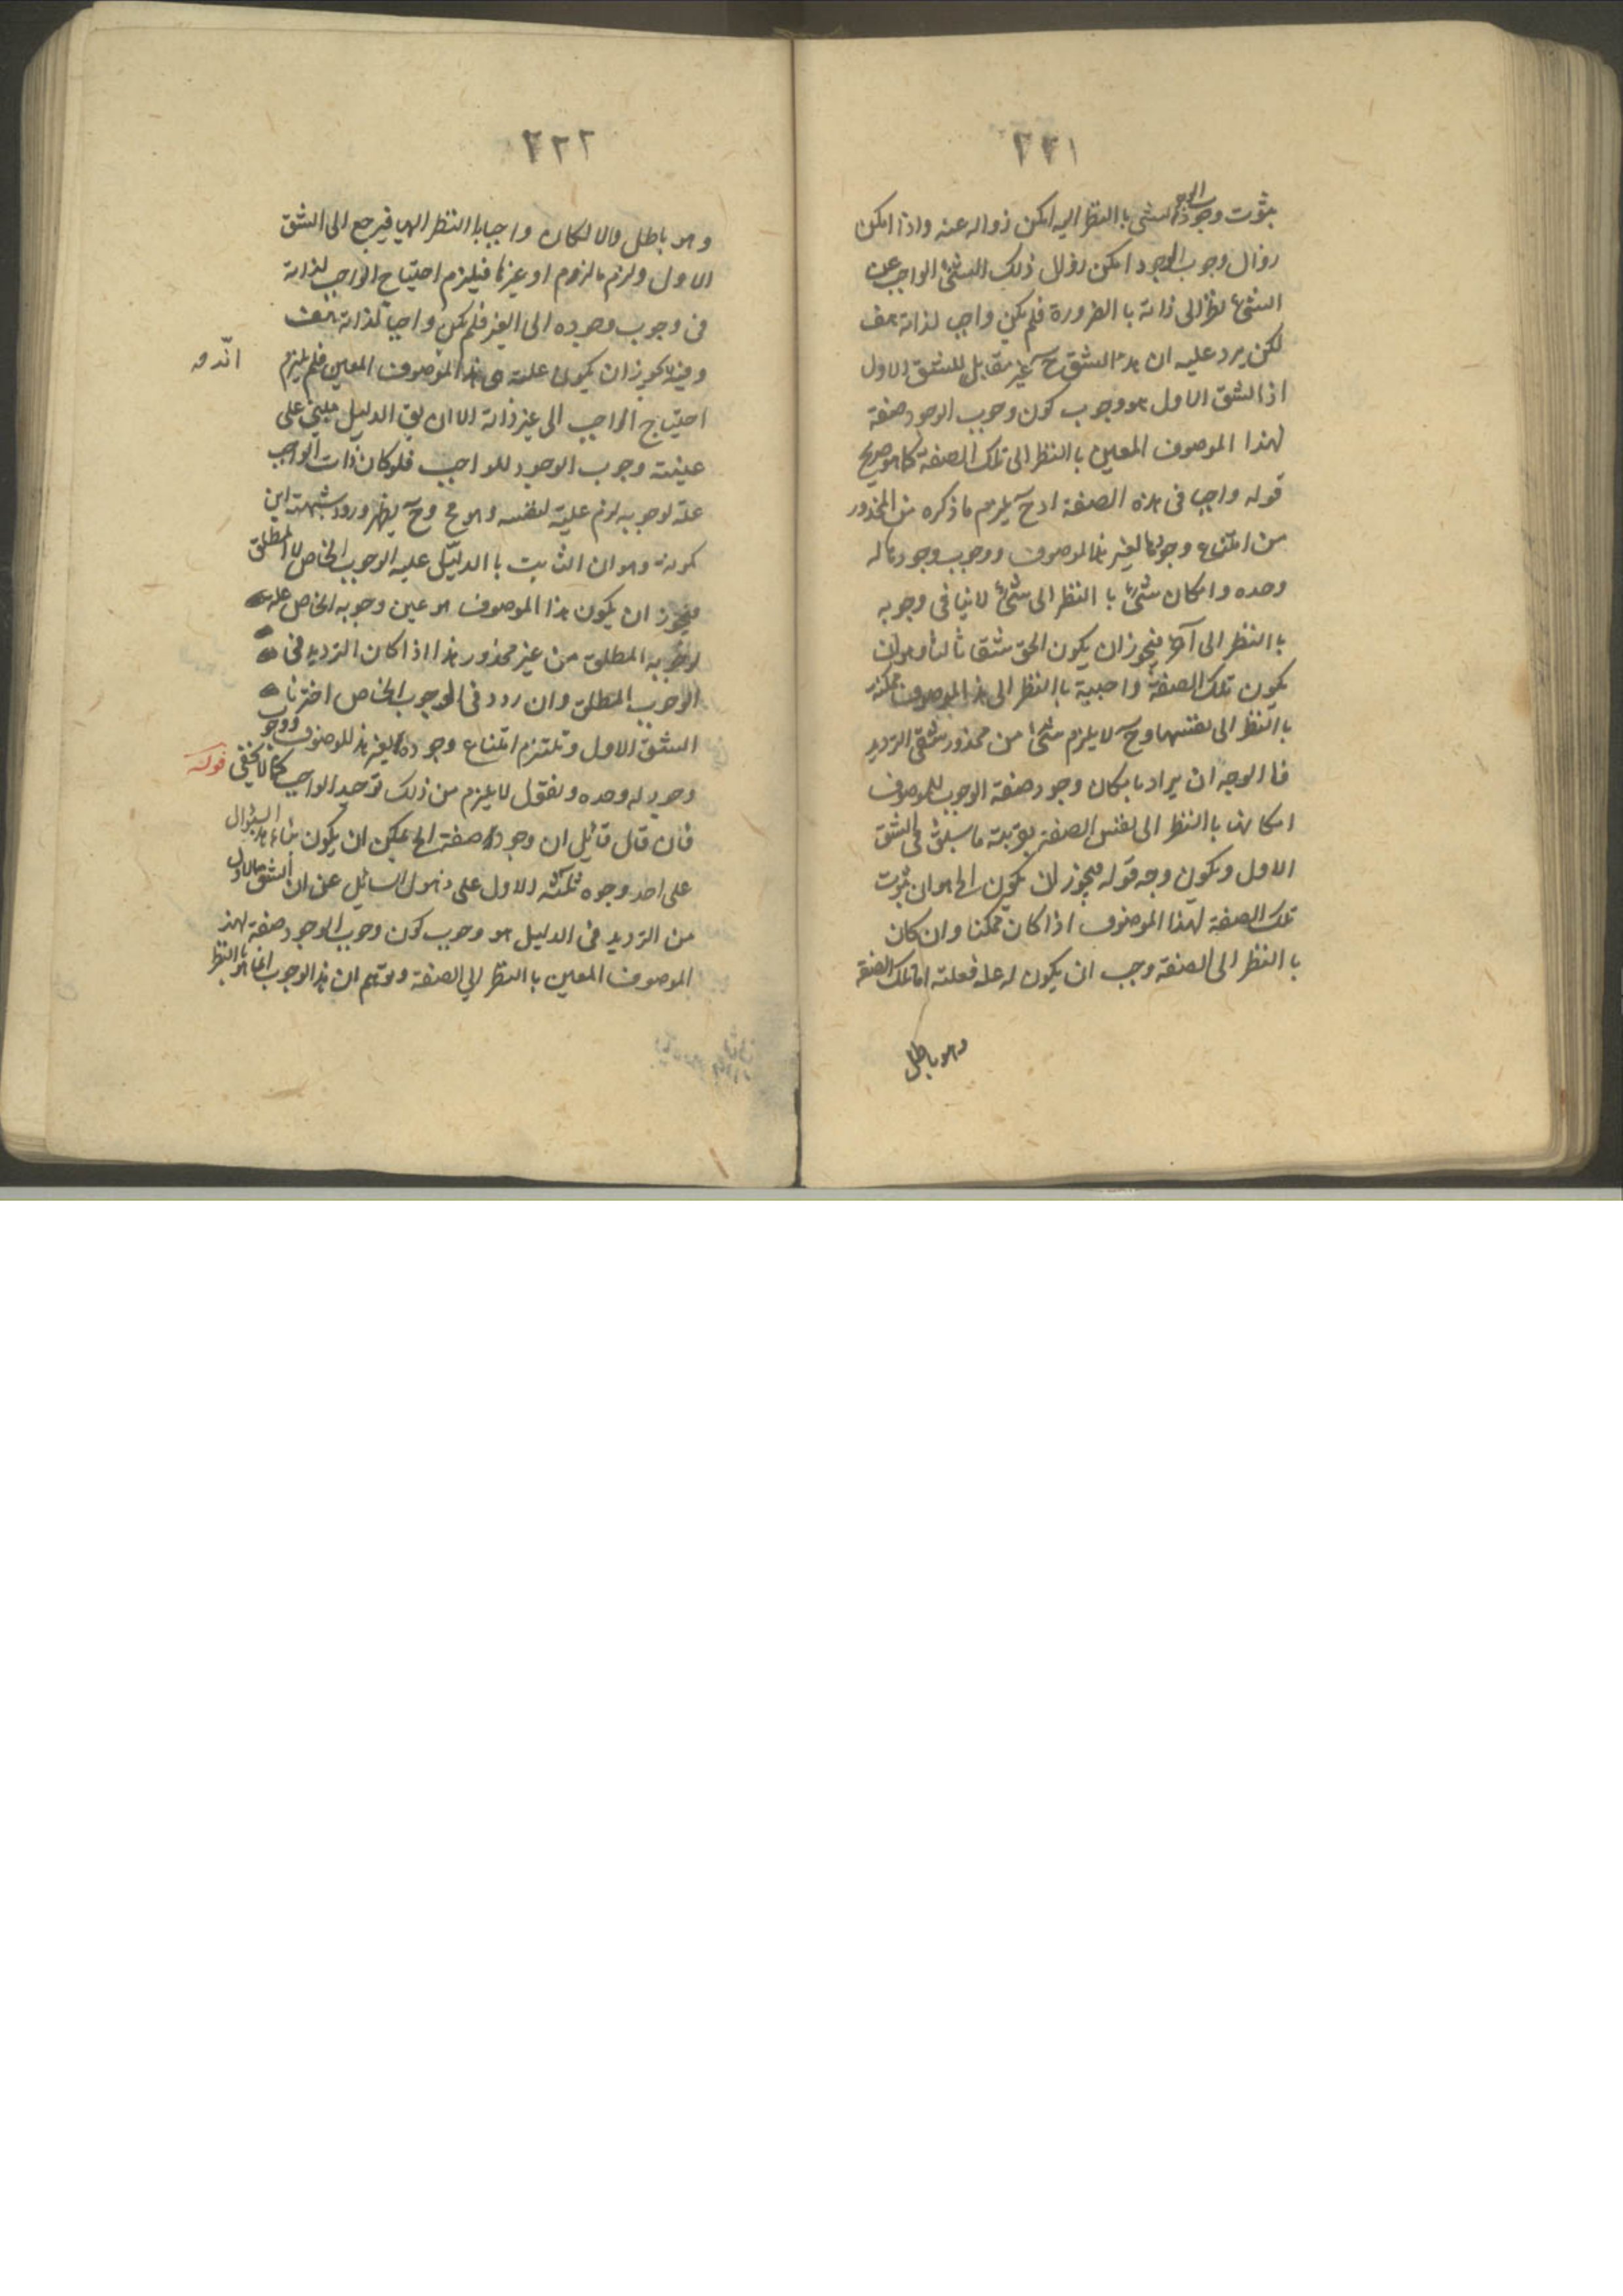 ٢٢١
بثوت وجوب الوجود لذلك الشئ باالنظر اليه امكن زواله عنه واذا امكن
زوال وجوب الوجود امكن زوال ذلك الشئ الواجب عن
الشئ نظرا الى ذاته باالضرورة فلم يكن واجب لذاته هف
لكن يرد عليه ان هذا الشق ح غير مقابل للشق الاول
اذ الشق الاول هو وجوب كون وجوب الوجود صفة
لهذا الموصوف المعين باالنظر الى تلك الصفة كما هو صريح
قوله واجب فى هذه الصفة اذ ح يلزم ما ذكره من المحذور
من امتناع وجودها لغير هذا الموصوف ووجوب وجودها له
وحده وامكان شئ باالنظر الى شئ لا ينافى وجوبه
باالنظر الى آخر فيجوز ان يكون الحق شقا ثالثا وهو ان
يكون تلك الصفة واجبية باالنظر الى هذا الموصوف ممكنة
باالنظر الى نفسها وح لا يلزم شئ من محذور شقى الترديد
فا الوجه ان يراد بامكان وجود صفة الوجوب للموصوف
امكانها باالنظر الى نفس الصفة بقرينة ما سبق فى الشق
الاول ويكون وجه قوله فيجوز ان يكون الخ هو ان ثبوت
تلك الصفة لهذا الموصوف اذا كان ممكنا وان كان
باالنظر الى الصفة وجب ان يكون له علة فعلته اما تلك الصفة
وهو باطل
٢٢٢
وهو باطل والا لكان واجبا باالنظر اليها فيرجع الى الشق
الاول ولزم ما لزوم او غيرها فيلزم احتياج الواجب لذاته
فى وجوب وجوده الى الغير فلم يكن واجبا لذاته هف
وفيه يجوز ان يكون علته هى هذا الموصوف المعين فلم يلزم
احتياج الواجب الى غير ذاته الا ان يق الدليل مبنى على
عينية وجوب الوجود للواجب فلو كان ذات الواجب
علة لوجوبه لزم علية لنفسه وهو مح وح يظهر ورود شبهة ابن
كمونه وهو ان الثابت باالدليل عليه الوجوب الخاص لا المطلق
فيجوز ان يكون هذا الموصوف هو عين وجوبه الخاص علة
لوجوبه المطلق من غير محذور هذا اذا كان الترديد فى
الوجوب المطلق وان ردد فى الوجوب الخاص اخترنا
الشق الاول ونلتزم امتناع وجوده لغير هذا الموصوف ووجوب
وجوده له وحده ونقول لا يلزم من ذلك توحيد الواجب كما لا يخفى قوله
فان قال قائل ان وجوده صفة الخ يمكن ان يكون بناء هذا السؤال
على احد وجوه ثلثة الاول على ذهول السائل عن ان الشق الاول
من الترديد فى الدليل هو وجوب كون وجوب الوجود صفة لهذا
الموصوف المعين باالنظر الى الصفة وتوهم ان هذا الوجوب انما هو باالنظر